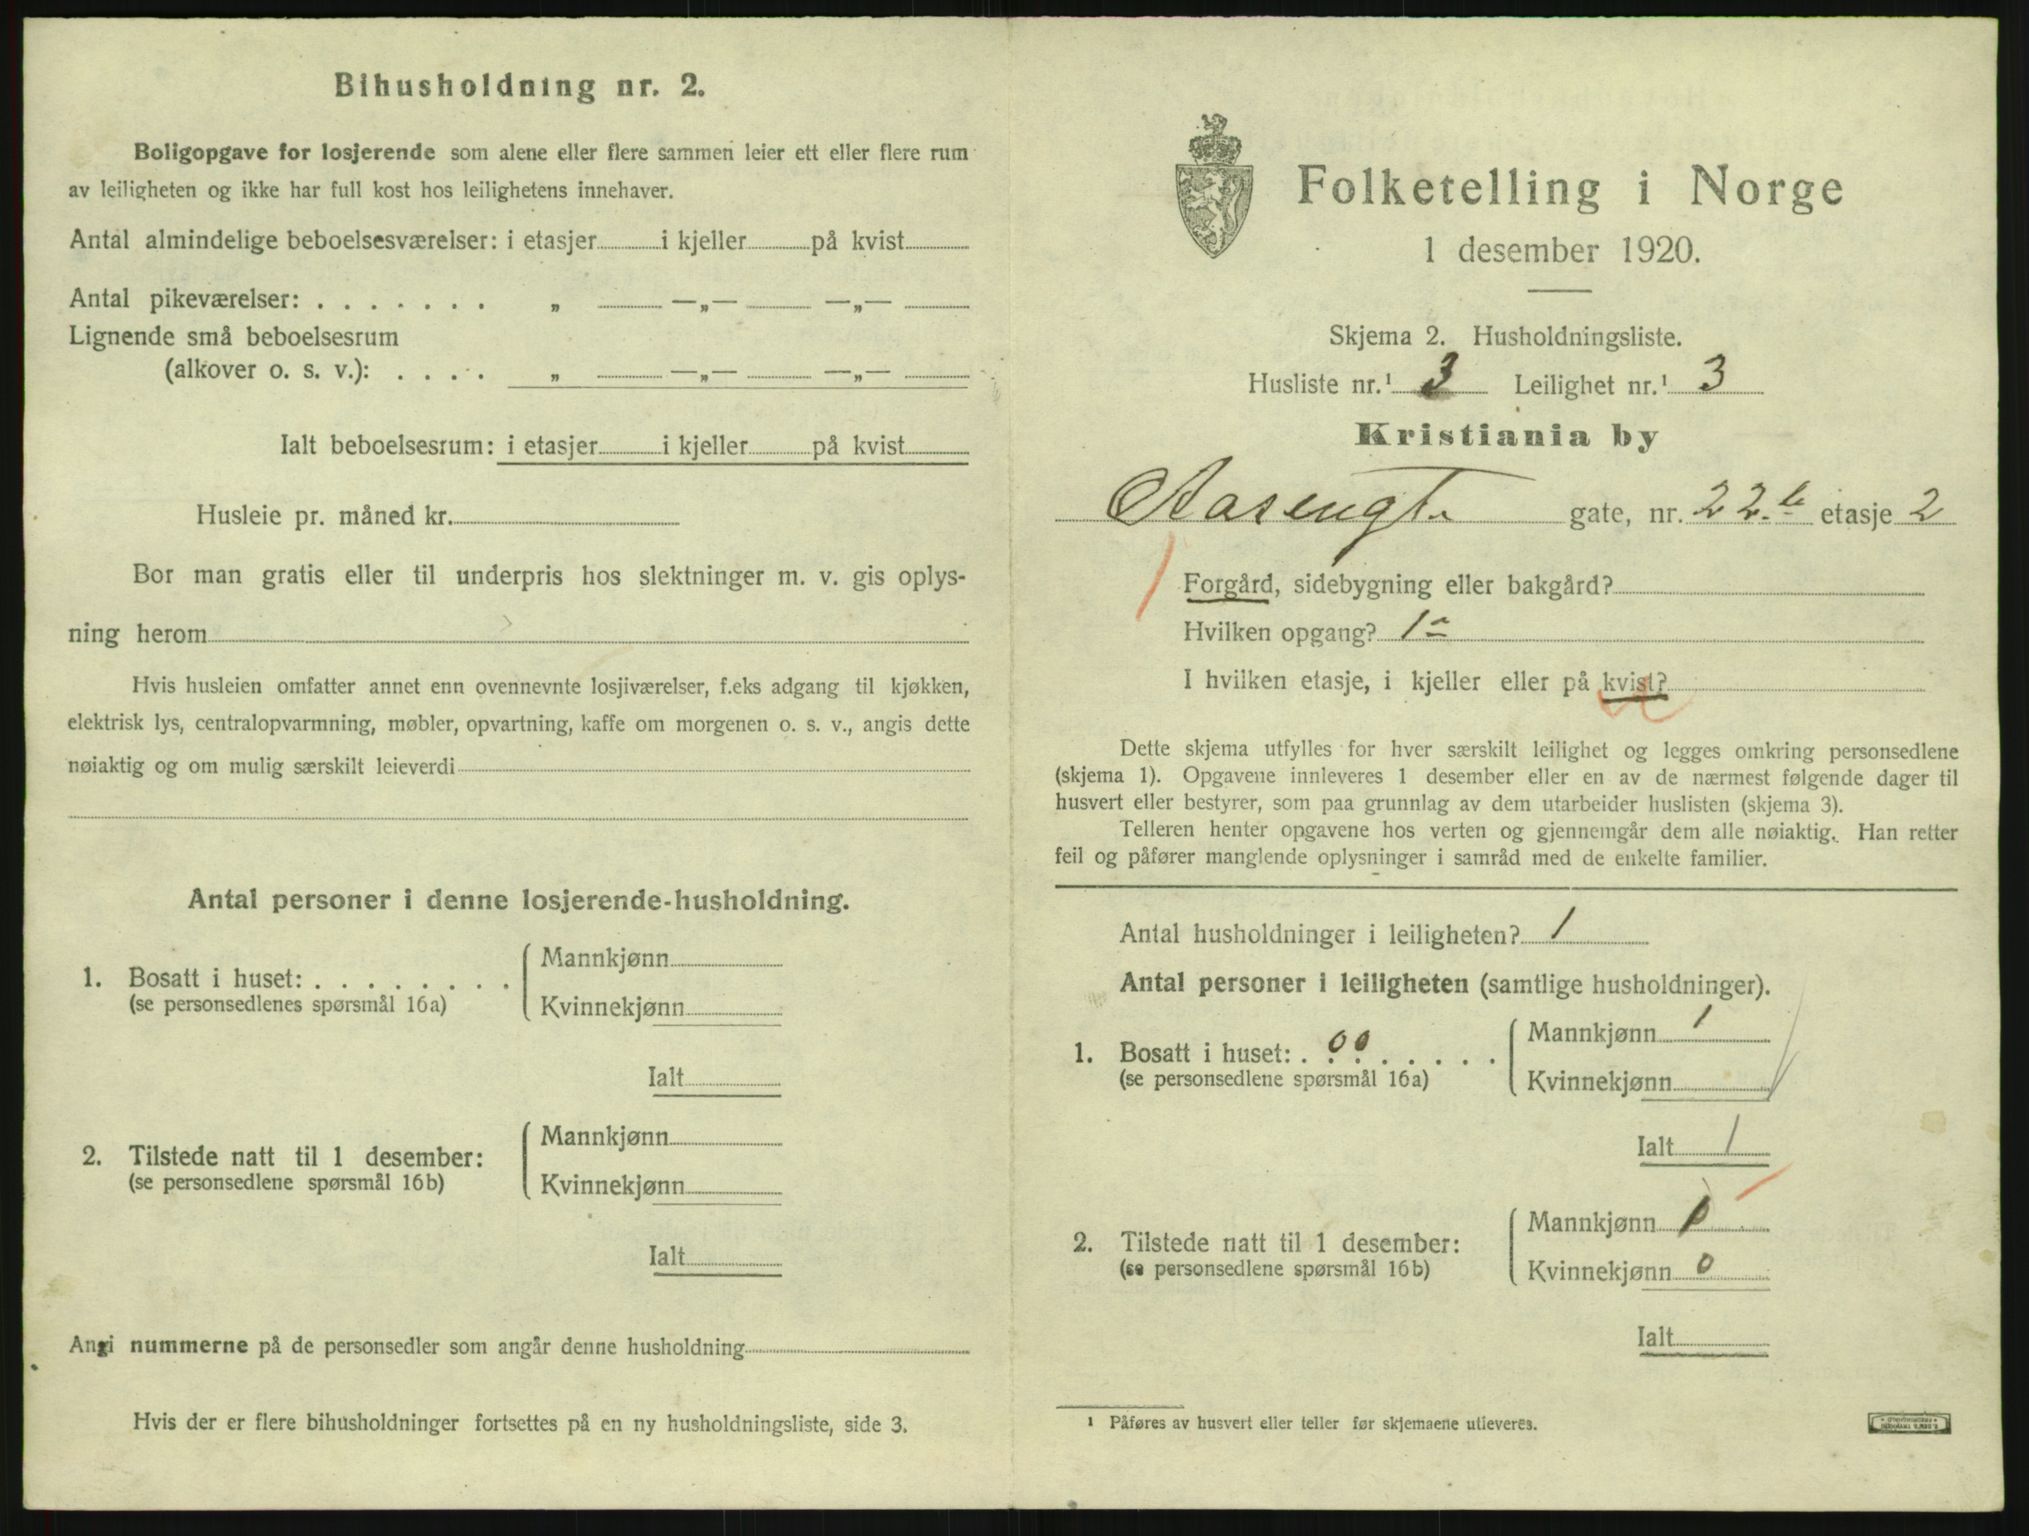 Bihusholdning nr. 2.
Boligopgave for losjerende som alene eller flere sammen leier ett eller flere rum
av leiligheten og ikke har full kost hos leilighetens innehaver.
Antal almindelige beboelsesværelser: i etasjer i kjeller på kvist
Antal pikeværelser: . . . . . . . „ —„— —„—
Lignende små beboelsesrum
(alkover o. s. v.): . . . . „ —„— —„—
Ialt beboelsesrum: i etasjer i kjeller på kvist
Husleie pr. måned kr.
Bor man gratis eller til underpris hos slektninger m. v. gis oplys-
ning herom
Hvis husleien omfatter annet enn ovennevnte losjiværelser, f.eks adgang til kjøkken,
elektrisk lys, centralopvarmning, møbler, opvartning, kaffe om morgenen o. s. v., angis dette
nøiaktig og om mulig særskilt leieverdi
Antal personer i denne losjerende-husholdning.
1. Bosatt i huset: . . . . . . . .
(se personsedlenes spørsmål 16a)
Mannkjønn
Kvinnekjønn
Ialt
2. Tilstede natt til 1 desember:
(se personsedlene spørsmål 16b)
Mannkjønn
Kvinnekjønn
Ialt
Angi nummerne på de personsedler som angår denne husholdning
Hvis der er flere bihusholdninger fortsettes på en ny husholdningsliste, side 3.
Folketelling i Norge
1 desember 1920.
Skjema 2. Husholdningsliste.
Husliste nr.¹ 3 Leilighet nr.¹ 3
Kristiania by
Aasengt. gate, nr. 22 b etasje 2
Forgård, sidebygning eller bakgård?
Hvilken opgang? 1a
I hvilken etasje, i kjeller eller på kvist?
Dette skjema utfylles for hver særskilt leilighet og legges omkring personsedlene
(skjema 1). Opgavene innleveres 1 desember eller en av de nærmest følgende dager til
husvert eller bestyrer, som paa grunnlag av dem utarbeider huslisten (skjema 3).
Telleren henter opgavene hos verten og gjennemgår dem alle nøiaktig. Han retter
feil og påfører manglende oplysninger i samråd med de enkelte familier.
Antal husholdninger i leiligheten? 1
Antal personer i leiligheten (samtlige husholdninger).
1. Bosatt i huset: . . . . . . . 00
(se personsedlene spørsmål 16a)
Mannkjønn 1
Kvinnekjønn
Ialt 1
2. Tilstede natt til 1 desember:
(se personsedlene spørsmål 16b)
Mannkjønn
Kvinnekjønn 0
Ialt
¹ Påføres av husvert eller teller før skjemaene utleveres.